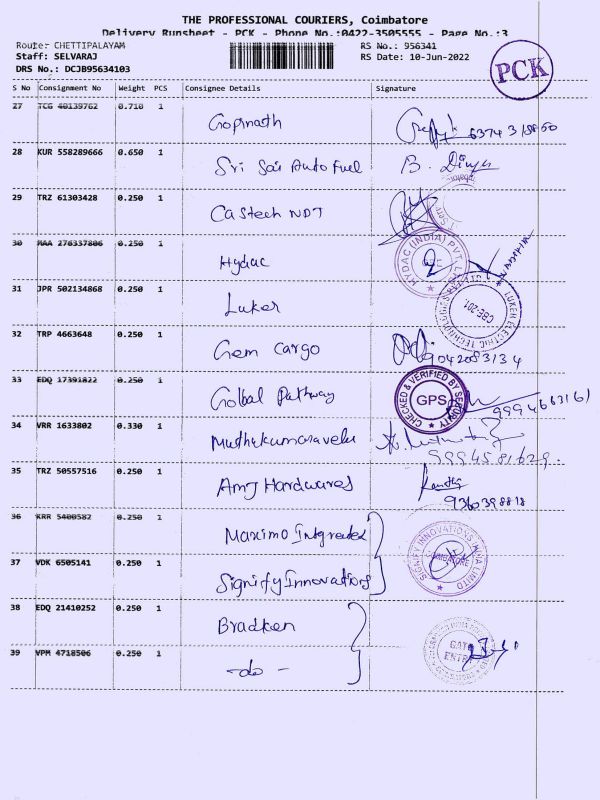 THE PROFESSIONAL COURIERS, Coimbatore
Delivery Runsheet - PCK - Phone No.:0422-3505555 - Page No.:3
Route: CHETTIPALAYAM RS No.: 956341
Staff: SELVARAJ RS Date: 10-Jun-2022
DRS No.: DCJB95634103
PCK
S No Consignment No Weight PCS Consignee Details Signature
27 TCG 40139762 0.710 1 Gopinath
28 KUR 558289666 0.650 1 Sri Sai Auto Fuel B. Divya
29 TRZ 61303428 0.250 1 Castech NDT
30 MAA 276337806 0.250 1 Hydac
HYDAC (INDIA) PVT. LTD
31 JPR 502134868 0.250 1 Luker
LUKER ELECTRIC TECHNOLOGIES
32 TRP 4663648 0.250 1 Gem Cargo 9042083134
33 EDQ 17391822 0.250 1 Golbal Pathway
CHECKED & VERIFIED BY SECURITY
GPS
34 VRR 1633802 0.330 1 Muthukumaravelu 9994581629
35 TRZ 50557516 0.250 1 Amj Hardwares 9360398818
36 KRR 5400582 0.250 1 Maximo Intgrated
37 VDK 6505141 0.250 1 Signify Innovations
SIGNIFY INNOVATIONS INDIA LIMITED
38 EDQ 21410252 0.250 1 Bradken
39 VPM 4718506 0.250 1 -do-
GATE
ENTRY